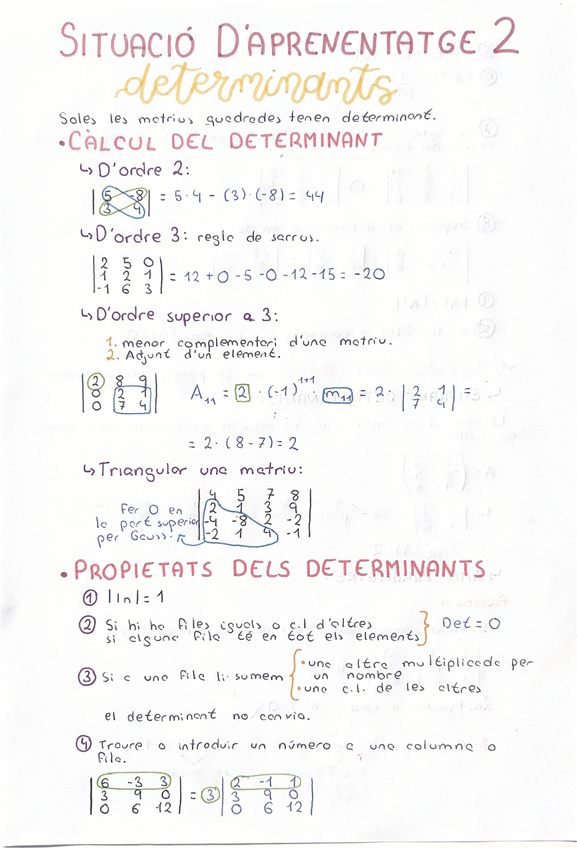 SITUACIÓ D'APRENENTATGE 2
determinants
Soles les matrius quadrades tenen determinant.
• CÀLCUL DEL DETERMINANT
↳ D'ordre 2:
|5 -8|
|3 4| = 5·4 - (3)·(-8) = 44
↳ D'ordre 3: regla de sarrus.
|2 5 0|
|1 2 1| = 12 + 0 - 5 - 0 - 12 - 15 = -20
|-1 6 3|
↳ D'ordre superior a 3:
1. menor complementari d'una matriu.
2. Adjunt d'un element.
|2 8 9|
|0 2 1| A₁₁ = 2 · (-1)¹⁺¹ · m₁₁ = 2 · |2 1| =
|0 7 4| |7 4|
= 2 · (8-7) = 2
↳ Triangular una matriu:
|4 5 7 8|
Fer 0 en |2 1 3 9|
la part superior |-4 -8 2 -2|
per Gauss. |-2 1 4 -1|
• PROPIETATS DELS DETERMINANTS
① |In| = 1
② Si hi ha files iguals o c.l d'altres
si alguna fila té en tot els elements } Det = 0
③ Si a una fila li sumem { • una altra multiplicada per
un nombre
• una c.l. de les altres
el determinant no canvia.
④ Traure o introduir un número a una columna o
fila.
|6 -3 3| |2 -1 1|
|3 9 0| = 3 |3 9 0|
|0 6 12| |0 6 12|